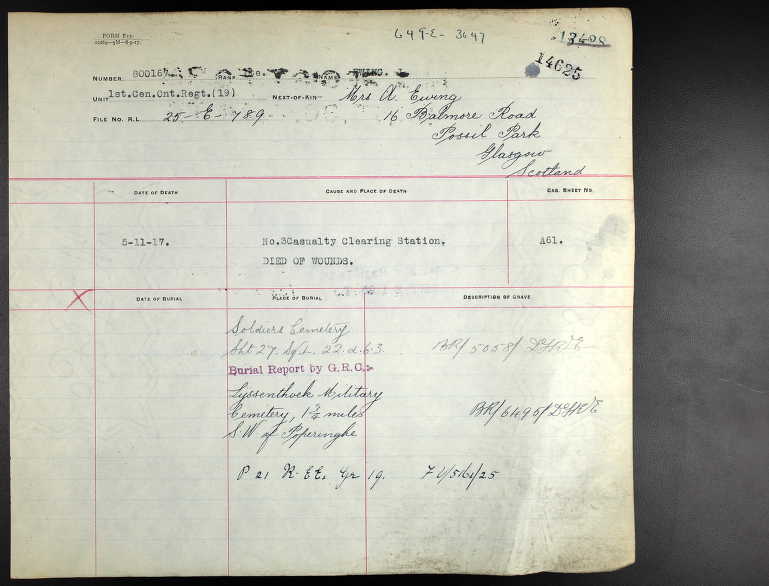 FORM
649-E- 3647
13408
14625
NUMBER RANK NAME EWING. J.
UNIT 1st.Cen.Ont.Regt.(19) NEXT-OF-KIN Mrs A. Ewing
FILE NO. R.L. 25-E-789 16 Balmore Road
Possil Park
Glasgow
Scotland
DATE OF DEATH CAUSE AND PLACE OF DEATH CAS. SHEET NO.
5-11-17. No.3Casualty Clearing Station. A61.
DIED OF WOUNDS.
DATE OF BURIAL PLACE OF BURIAL DESCRIPTION OF GRAVE
Soldiers Cemetery
Sht 27. Sq.L. 22.d.6.3. BR/5058/DGR/E
Burial Report by G.R.C.:-
Lyssenthoek Military
Cemetery, 1¾ miles BR/6495/DGR/E
S.W of Poperinghe
P 21 R-EE. Gr 19.